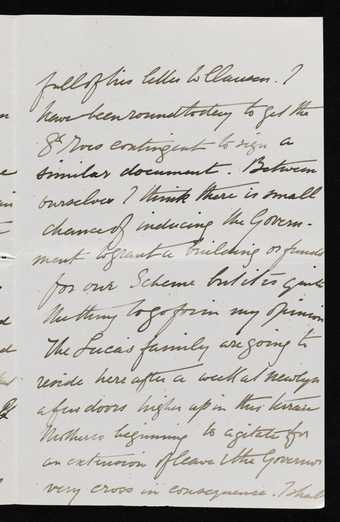 full of his letter to Clausen. I
have been round today to get the
8th Rocs contingent to sign a
similar document. Between
ourselves I think there is small
chance of inducing the Govern-
ment to grant a building or funds
for our Scheme but it is quite
the thing to go for in my opinion
The Lucas family are going to
reside here after a week at Newlyn
a few doors higher up in this terrace
Mother is beginning to agitate for
an extension of leave & the Governor
very cross in consequence. I shall